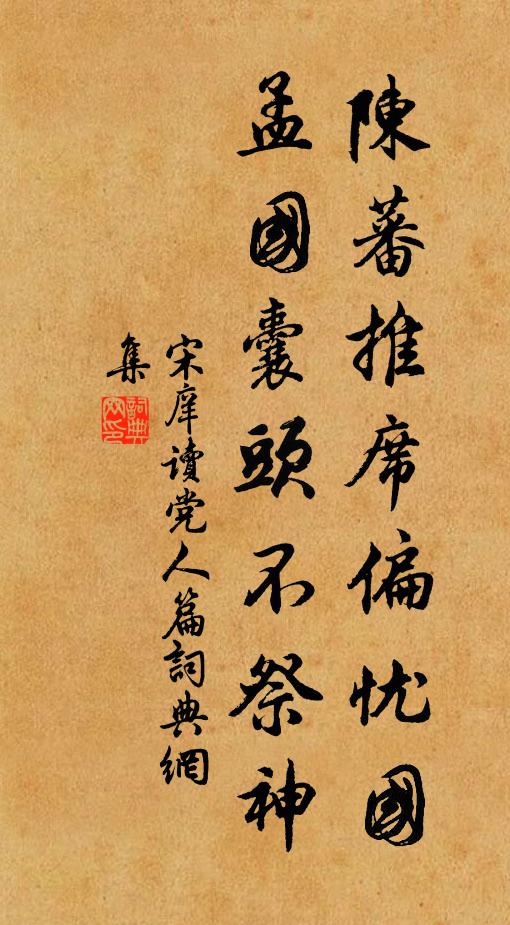 陳蕃推席偏忧國
孟國囊頭不祭神
宋庠讀党人篇詞典網
集
詞典網印